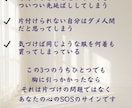 つい つい先延ばししてしまう
片付けられない自分はダメ人間
だと思ってしまう
気づけば同じような服を何着も
買ってしまっている
この3つのうちひとつでも
胸に引っかかったなら
それは片づけの問題ではなく
あなたの心のSOSのサインです